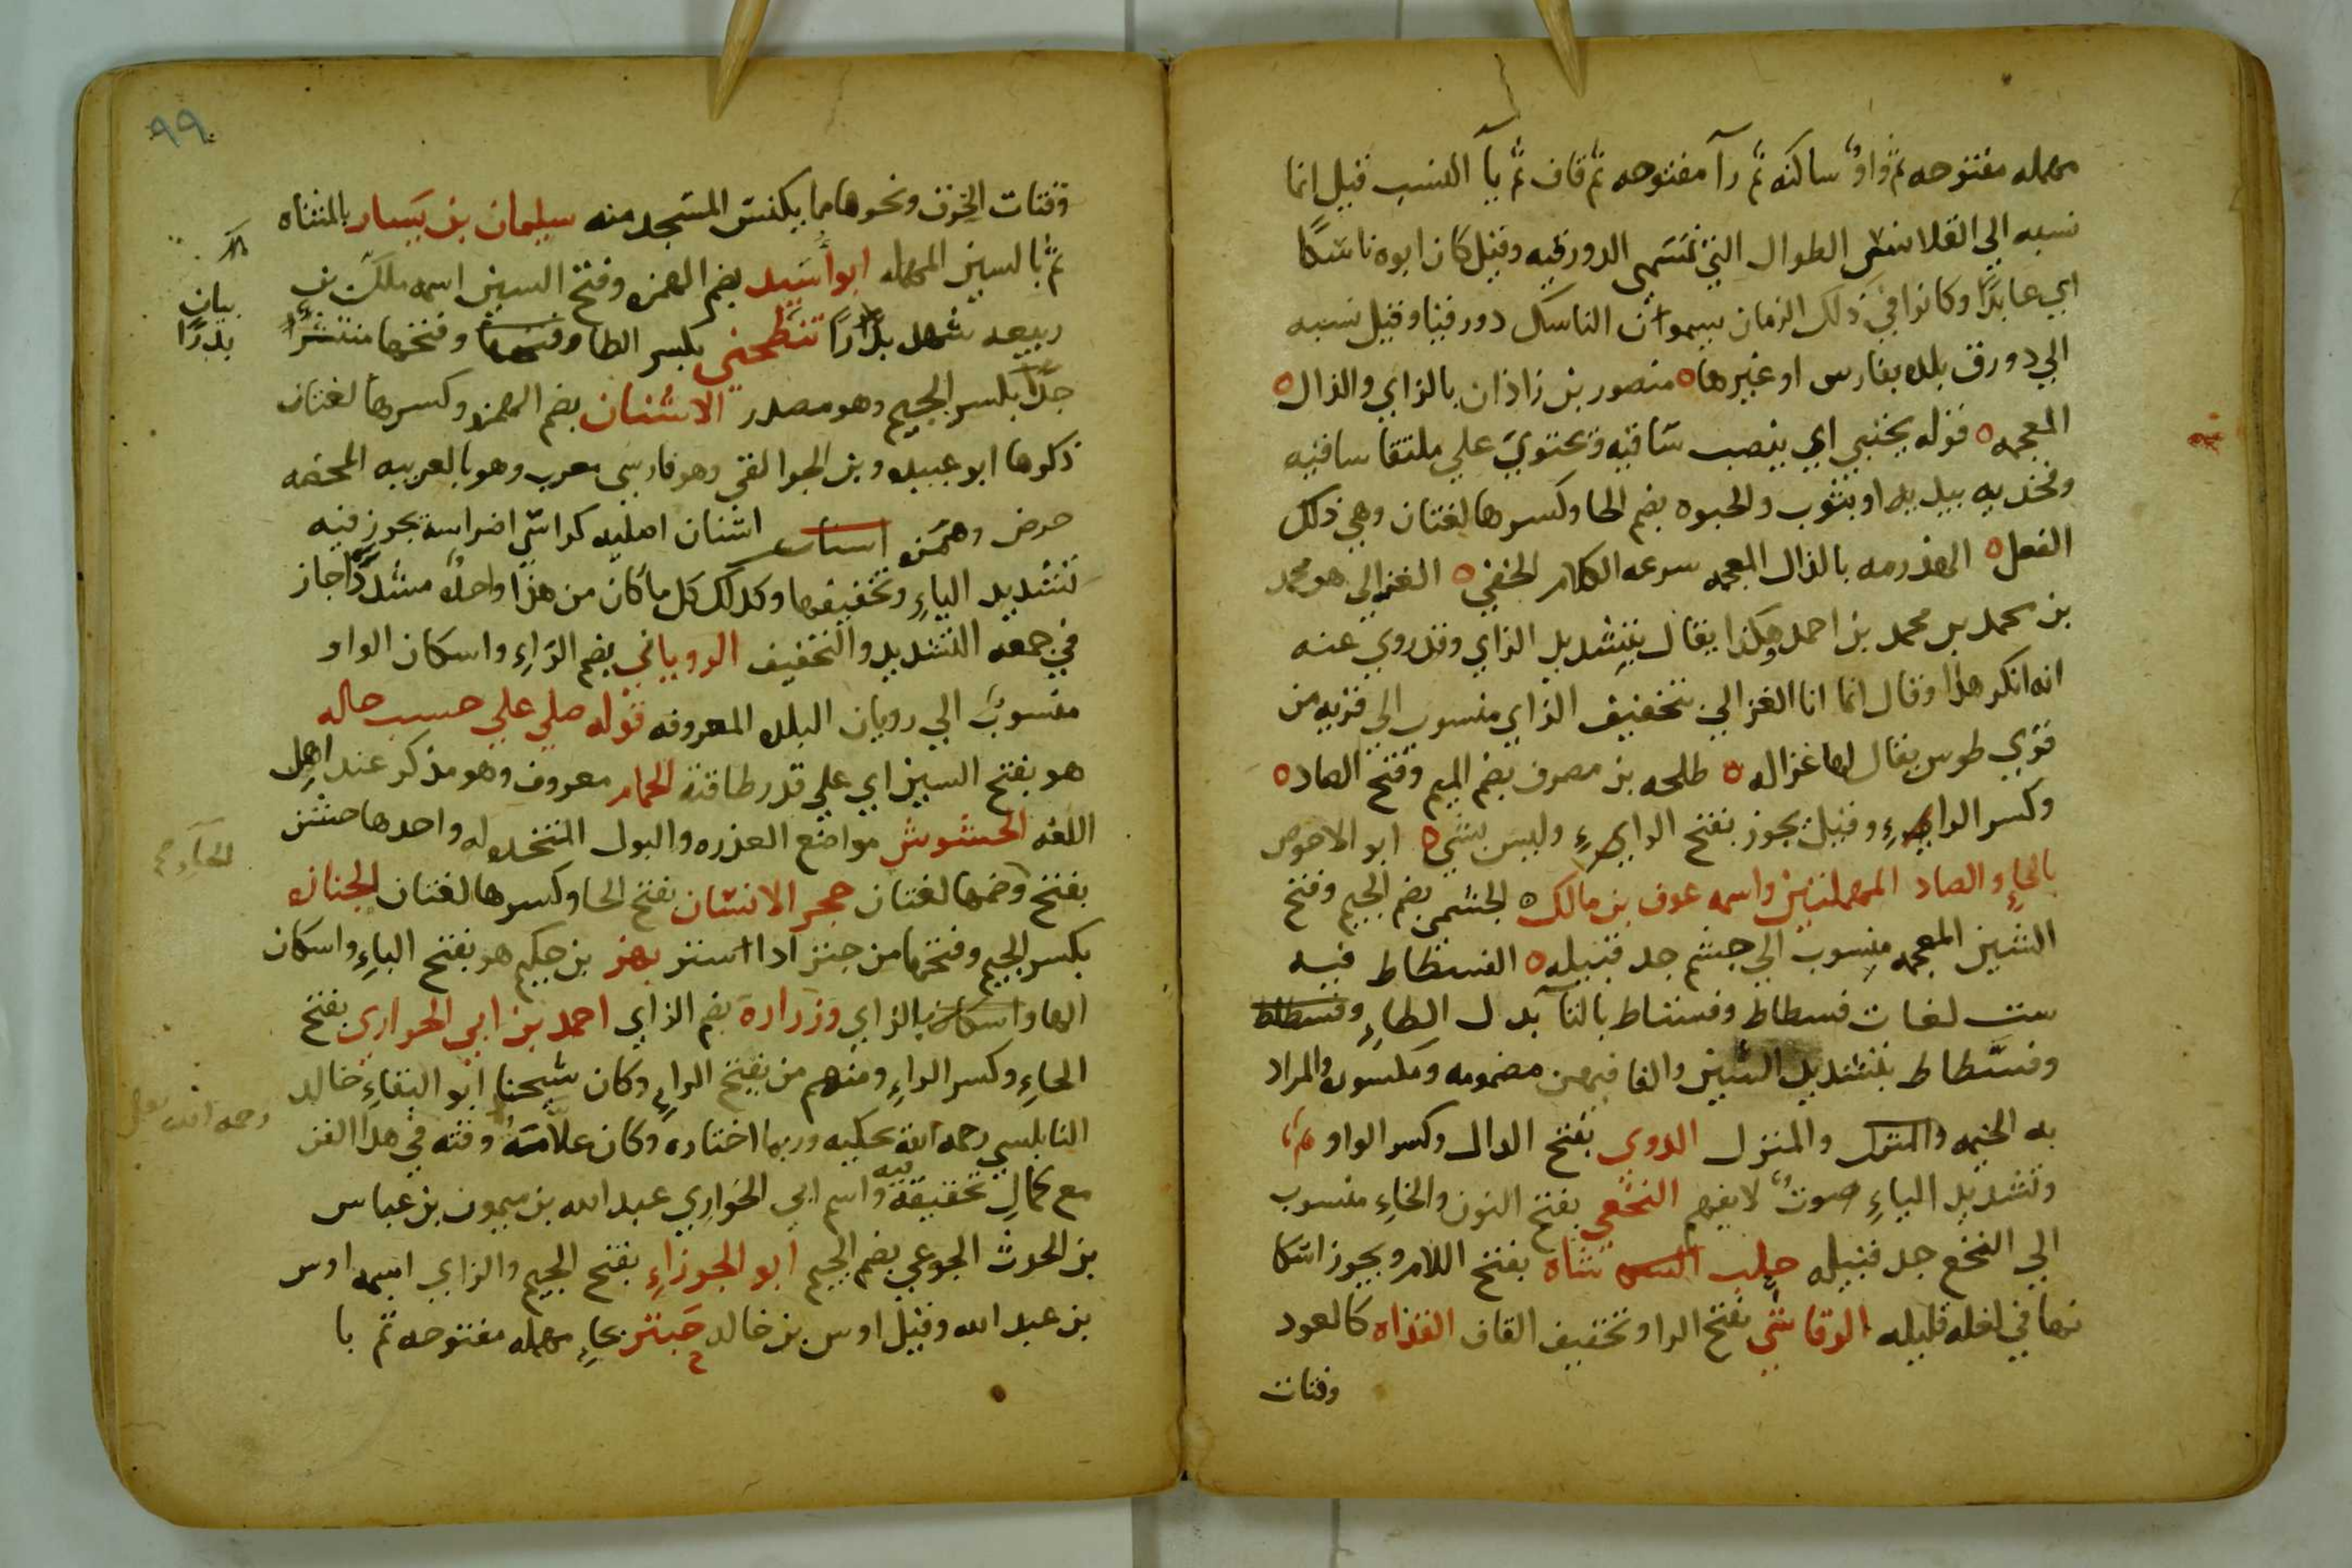 مهمله مفتوحه ثم واو ساكنه ثم رآ مفتوحه ثم قاف ثم يآ النسب قيل انما
نسبه الي القلانس الطوال التي تسمى الدورقيه وقيل كان ابوه ناسكًا
اي عابدًا وكانوا في ذلك الزمان يسموان الناسك دورقيا وقيل نسبه
الي دورق بلده بفارس او غيرها ه منصور بن زاذان بالزاي والذال ه
المعجمه ه قوله يحتبي اي ينصب ساقيه ويحتوي علي ملتقا ساقيه
وفخذيه بيديه او بثوب والحبوه بضم الحا وكسرها لغتان وهي ذلك
الفعل ه الهذرمه بالذال المعجمه سرعه الكلام الخفي ه الغزالي هو محمد
بن محمد بن محمد بن احمد هكذا يقال بتشديد الزاي وقد روي عنه
انه انكر هذا وقال انما انا الغزالي بتخفيف الزاي منسوب الي قريه من
قري طوس يقال لها غزاله ه طلحه بن مصرف بضم الميم وفتح الصاد ه
وكسر الراء وقيل يجوز بفتح الراء وليس بشي ه ابو الاحوص
بالحاءِ والصاد المهملتين واسمه عوف بن مالك ه الجشمي بضم الجيم وفتح
الشين المعجمه منسوب الي جشم جد قبيله ه الفسطاط فيه
ست لغات فسطاط وفستاط بالتآ بدل الطاءِ وفسطاط
وفسّطاط بتشديد السين والفا فيهن مضمومه ومكسوره والمراد
به الخيمه والمنزل والمنزل الدوي بفتح الدال وكسر الواو
وتشديد الياءِ صوت لا يفهم النخعي بفتح النون والخاءِ منسوب
الي النخع جد قبيله حلب شاة بفتح اللام ويجوز اسكا
نها في لغله قليله الرقاشي بفتح الرا وتخفيف القاف القذاه كالعود
وفتات
٩٩
وفتات الخزف ونحوها مما يكنس المسجد منه سليمان بن يسار بالمثناه
ثم بالسين المهمله ابو أسيد بضم الهمزه وفتح السين اسمه ملك بن
ربيعه شهد بدرًا تنطحني بكسر الطا وفتحها وفتحها منتشرًا
بيان
بدرًا
جدًا بكسر الجيم وهو مصدر الاشنان بضم الهمزه وكسرها لغتان
ذكرها ابو عبيده وبن الجواليقي وهو فارسي معرب وهو بالعربيه المحضه
حرض وهمزه اشنان اصليه كراسي اضراسه يجوز فيه
تشديد الياءِ وتخفيفها وكذلك كل ما كان من هذا واحده مشددًا جاز
في جمعه التشديد والتخفيف الروياني بضم الراءِ واسكان الواو
منسوب الي رويان البلده المعروفه قوله صلي علي حسب حاله
هو بفتح السين اي علي قدر طاقته الحمام معروف وهو مذكر عند اهل
اللغه الحشوش مواضع العذره والبول المتخذه له واحدها حش
بفتح وضمها لغتان حجر الانسان بفتح الحا وكسرها لغتان الجنازه
بكسر الجيم وفتحها من جنز اذا استتر بهز بن حكيم هو بفتح الباءِ واسكان
الها واسكان بالزاي وزراره بضم الزاي احمد بن ابي الحواري بفتح
الحاءِ وكسر الراءِ ومنهم من بفتح الراءِ وكان شيخنا ابو البقاءِ خالد
النابلسي رحمه الله يحكيه وربما اختاره وكان علامة وقته في هذا الفن
رحمه الله
مع كمال تحقيقه فيه واسم ابي الحواري عبد الله بن ميمون بن عباس
بن الحرث الجوعي بضم الجيم ابو الجوزاءِ بفتح الجيم والزاي اسمه اوس
بن عبد الله وقيل اوس بن خالد حبتر بحاءٍ مهمله مفتوحه ثم با